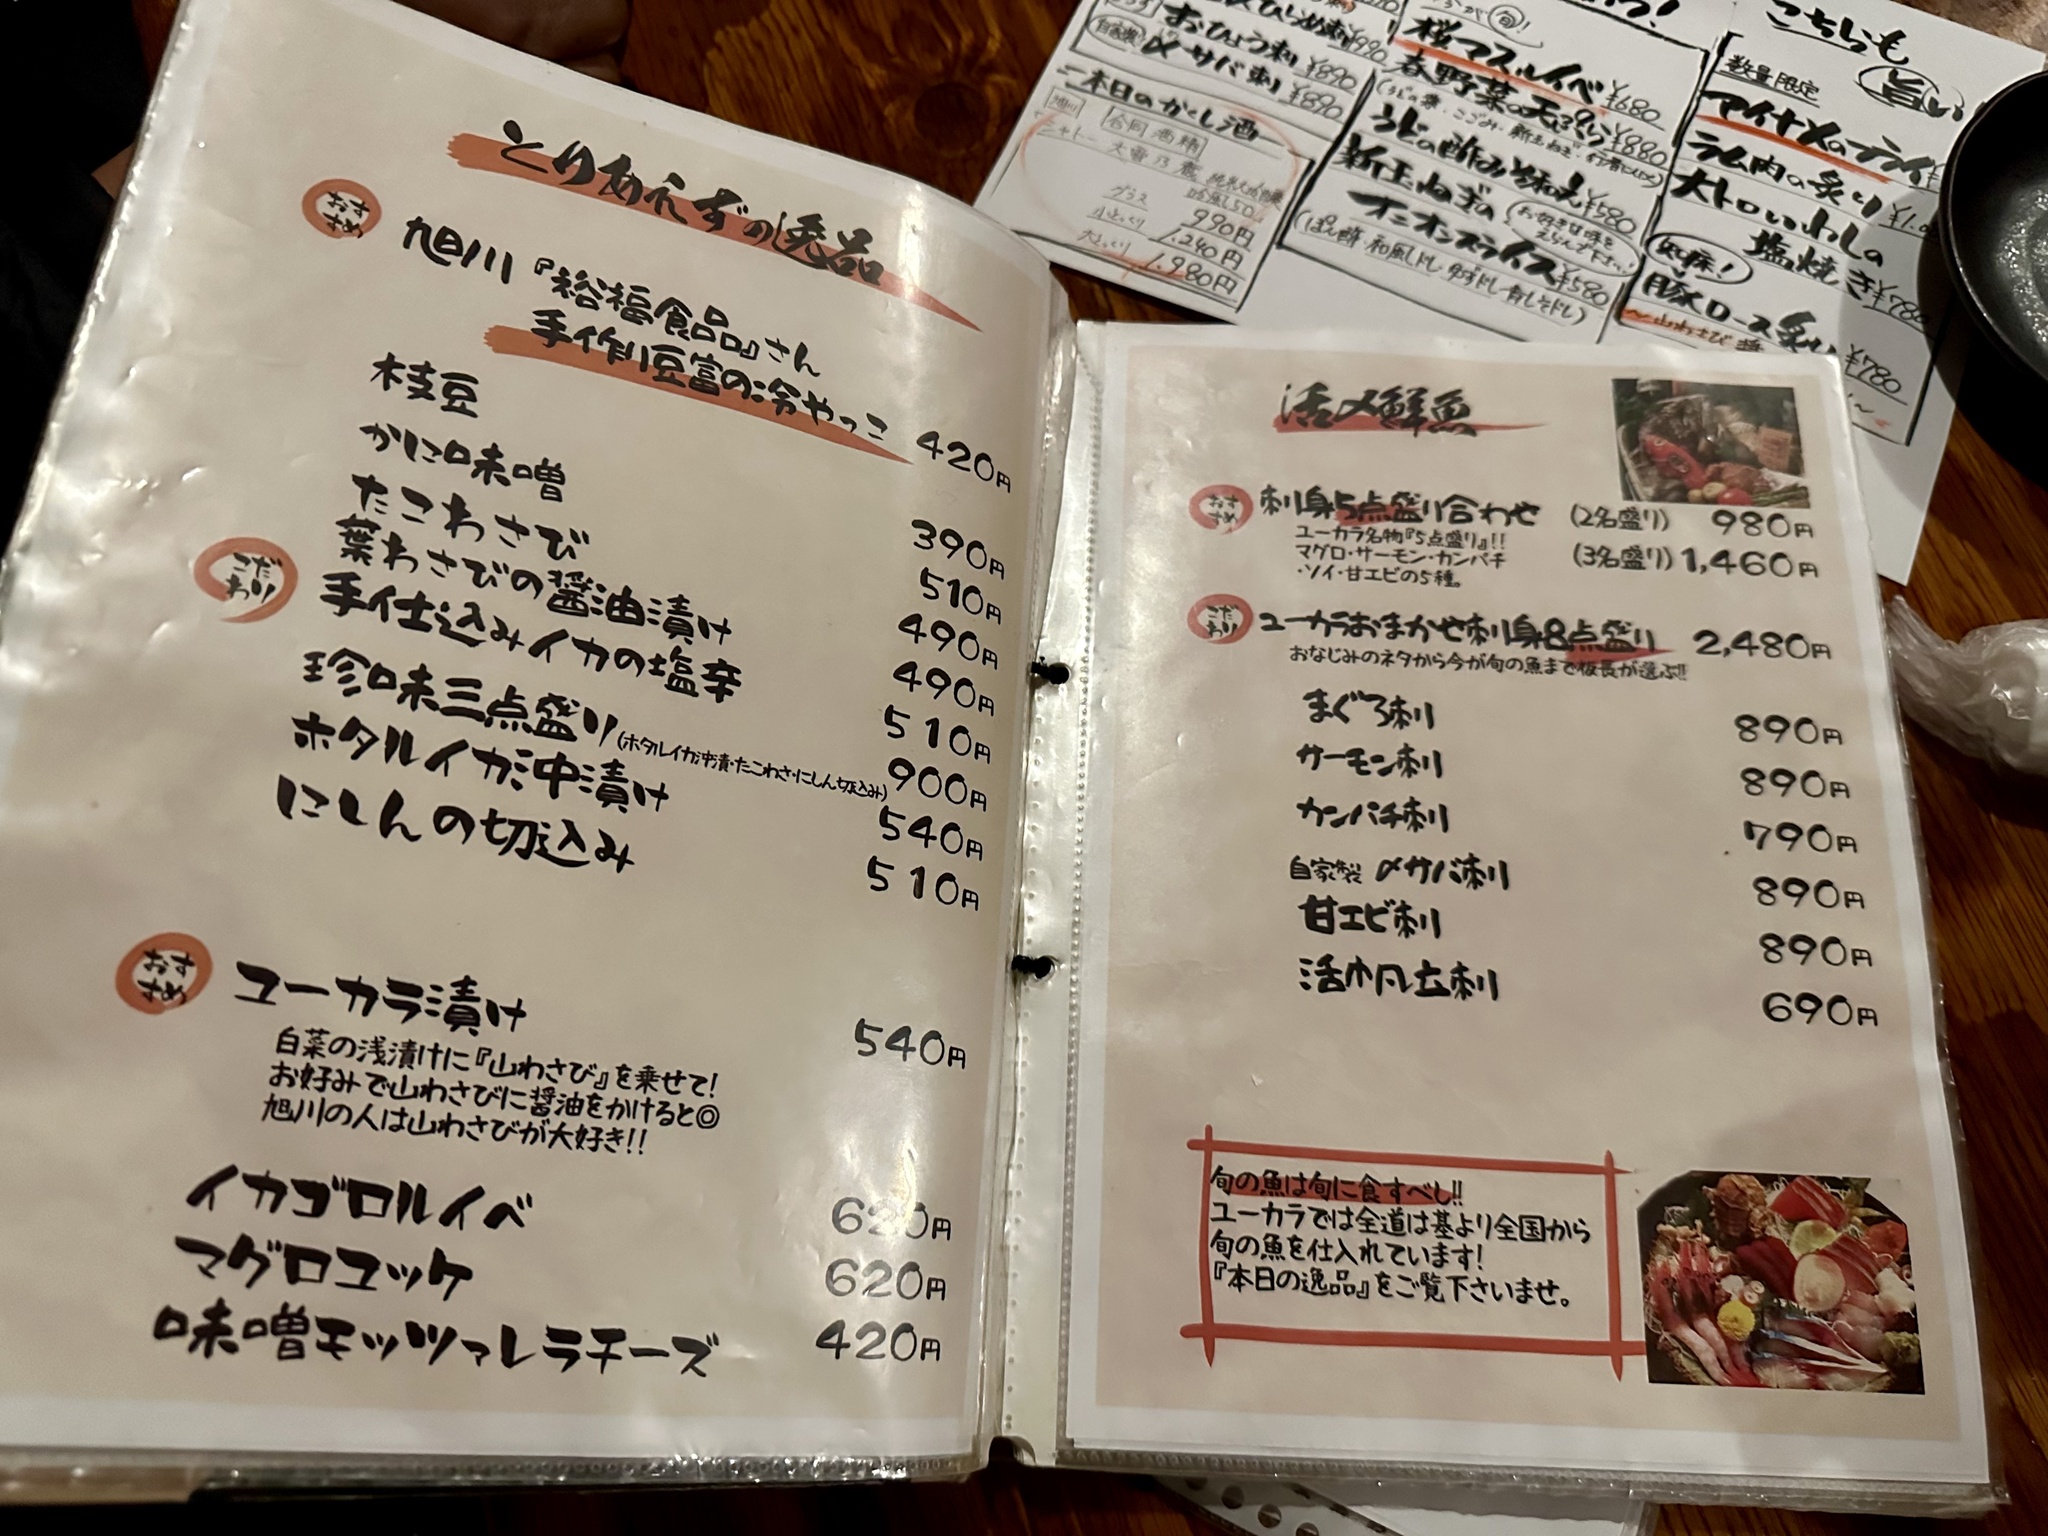 とりあえずの逸品
おすすめ
旭川『裕福食品』さん
手作り豆富の冷やっこ 420円
枝豆 390円
かに味噌 510円
たこわさび 490円
葉わさびの醤油漬け 490円
こだわり
手仕込みイカの塩辛 510円
珍味三点盛り(ホタルイカ沖漬・たこわさ・にしん切込み) 900円
ホタルイカ沖漬け 540円
にしんの切込み 510円
おすすめ
ユーカラ漬け 540円
白菜の浅漬けに『山わさび』を乗せて!
お好みで山わさびに醤油をかけると◎
旭川の人は山わさびが大好き!!
イカゴロルイベ 620円
マグロユッケ 620円
味噌モッツァレラチーズ 420円
活〆鮮魚
おすすめ
刺身5点盛り合わせ (2名盛り) 980円
ユーカラ名物『5点盛り』!!
(3名盛り) 1,460円
マグロ・サーモン・カンパチ
・ソイ・甘エビの5種。
こだわり
ユーカラおまかせ刺身8点盛り 2,480円
おなじみのネタから今が旬の魚まで板長が選ぶ!!
まぐろ刺 890円
サーモン刺 890円
カンパチ刺 790円
自家製 〆サバ刺 890円
甘エビ刺 890円
活帆立刺 690円
旬の魚は旬に食すべし!!
ユーカラでは全道は基より全国から
旬の魚を仕入れています!
『本日の逸品』をご覧下さいませ。
ひらめ刺 ¥990
おひょう刺 ¥890
自家製
〆サバ刺 ¥890
本日のかくし酒
グラス 990円
小とっくり 1,240円
大とっくり 1,980円
旬!
桜マスルイベ ¥680
春野菜の天ぷら ¥880
うどの酢みそ和え ¥580
新玉ねぎの
オニオンスライス ¥580
お好きな味を
えらんで下さい
(ぽん酢・和風ドレ・ゆずドレ・青しそドレ)
こちらも
旨い
数量限定
マイナメのフライ
ラム肉の炙り
大トロいわしの
塩焼き ¥780
豚ロース炙り ¥780
〜山わさび醤